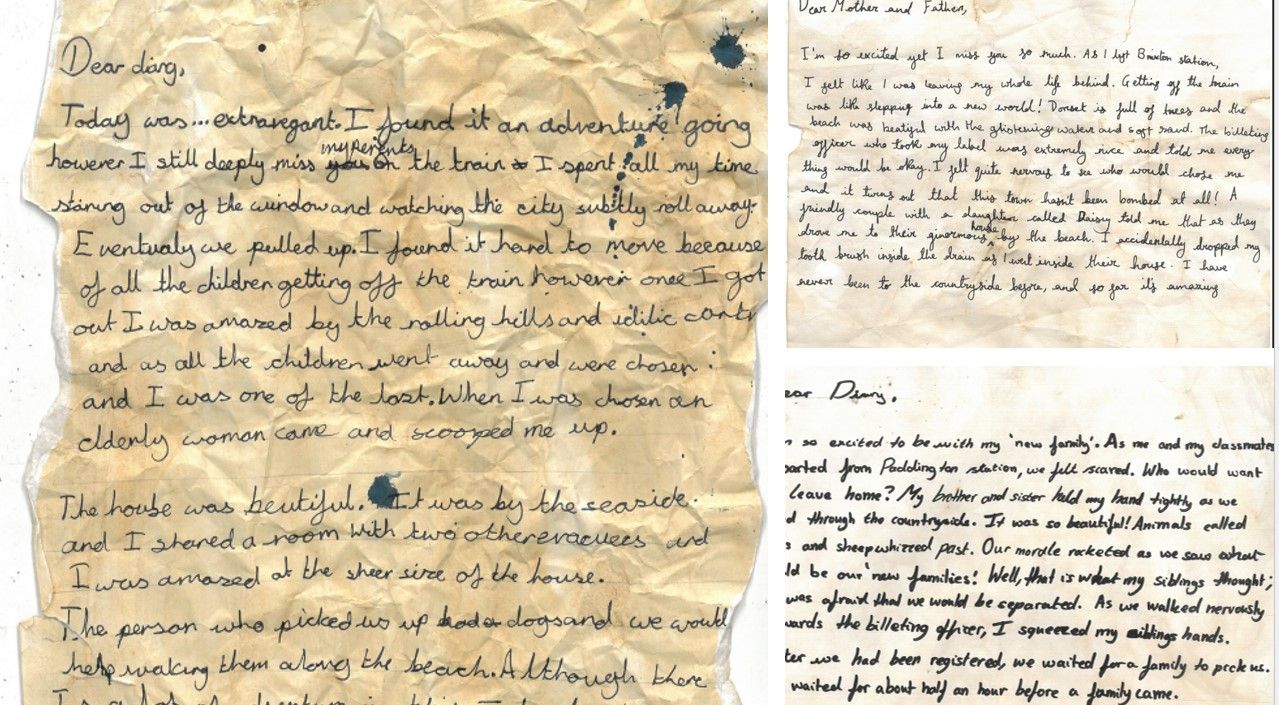 Dear diary,
Today was... extravegant. I found it an adventure going
my perents
however I still deeply miss you On the train to I spent all my time
staring out of the window and watching the city subtly roll away.
Eventualy we pulled up. I found it hard to move because
of all the children getting off the train however once I got
out I was amazed by the rolling hills and idilic contr
and as all the children went away and were chosen
and I was one of the last. When I was chosen an
elderly woman came and scooped me up.
The house was beutiful. It was by the seaside.
and I shared a room with two other evacuees and
I was amazed at the sheer size of the house.
The person who picked us up had a dogs and we would
help walking them along the beach. Although there
Dear Mother and Father,
I'm so excited yet I miss you so much. As I left Brixton station,
I felt like I was leaving my whole life behind. Getting off the train
was like stepping into a new world! Dorset is full of trees and the
beach was beatiful with the glistening water and soft sand. The billeting
officer who took my label was extremely nice and told me every
thing would be okay. I felt quite nervous to see who would chose me
and it turns out that this town hasn't been bombed at all! A
friendly couple with a daughter called Daisy told me that as they
house
drove me to their ginormous by the beach. I accidentally dropped my
tooth brush inside the drain as I went inside their house. I have
never been to the countryside before, and so far it's amazing
ear Diary,
so excited to be with my 'new family'. As me and my classmates
parted from Paddington station, we felt scared. Who would want
leave home? My brother and sister held my hand tightly as we
d through the countryside. It was so beautiful! Animals called
s and sheep whizzed past. Our morale rocketed as we saw what
ld be our 'new families! Well, that is what my siblings thought;
was afraid that we would be separated. As we walked nervously
wards the billeting officer, I squeezed my siblings hands.
ter we had been registered, we waited for a family to pick us.
waited for about half an hour before a family came.